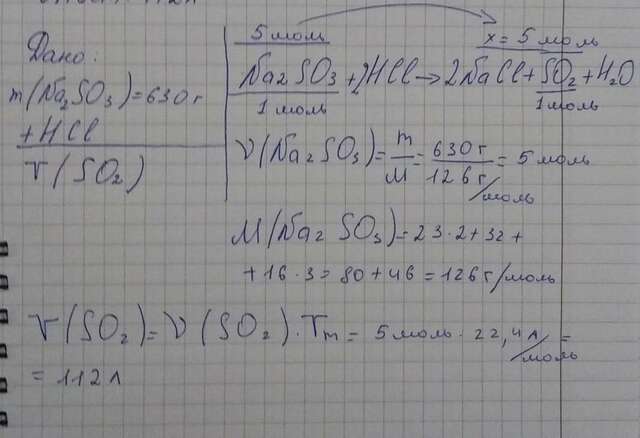 Дано:
m(Na₂SO₃)=630г
+HCl
V(SO₂)
5 моль x=5 моль
Na₂SO₃+2HCl→2NaCl+SO₂+H₂O
1 моль 1 моль
ν(Na₂SO₃)=m/M=630г/126г/моль=5 моль
M(Na₂SO₃)=23·2+32+
+16·3=80+46=126г/моль
V(SO₂)=ν(SO₂)·Vm=5моль·22,4л/моль=
=112л